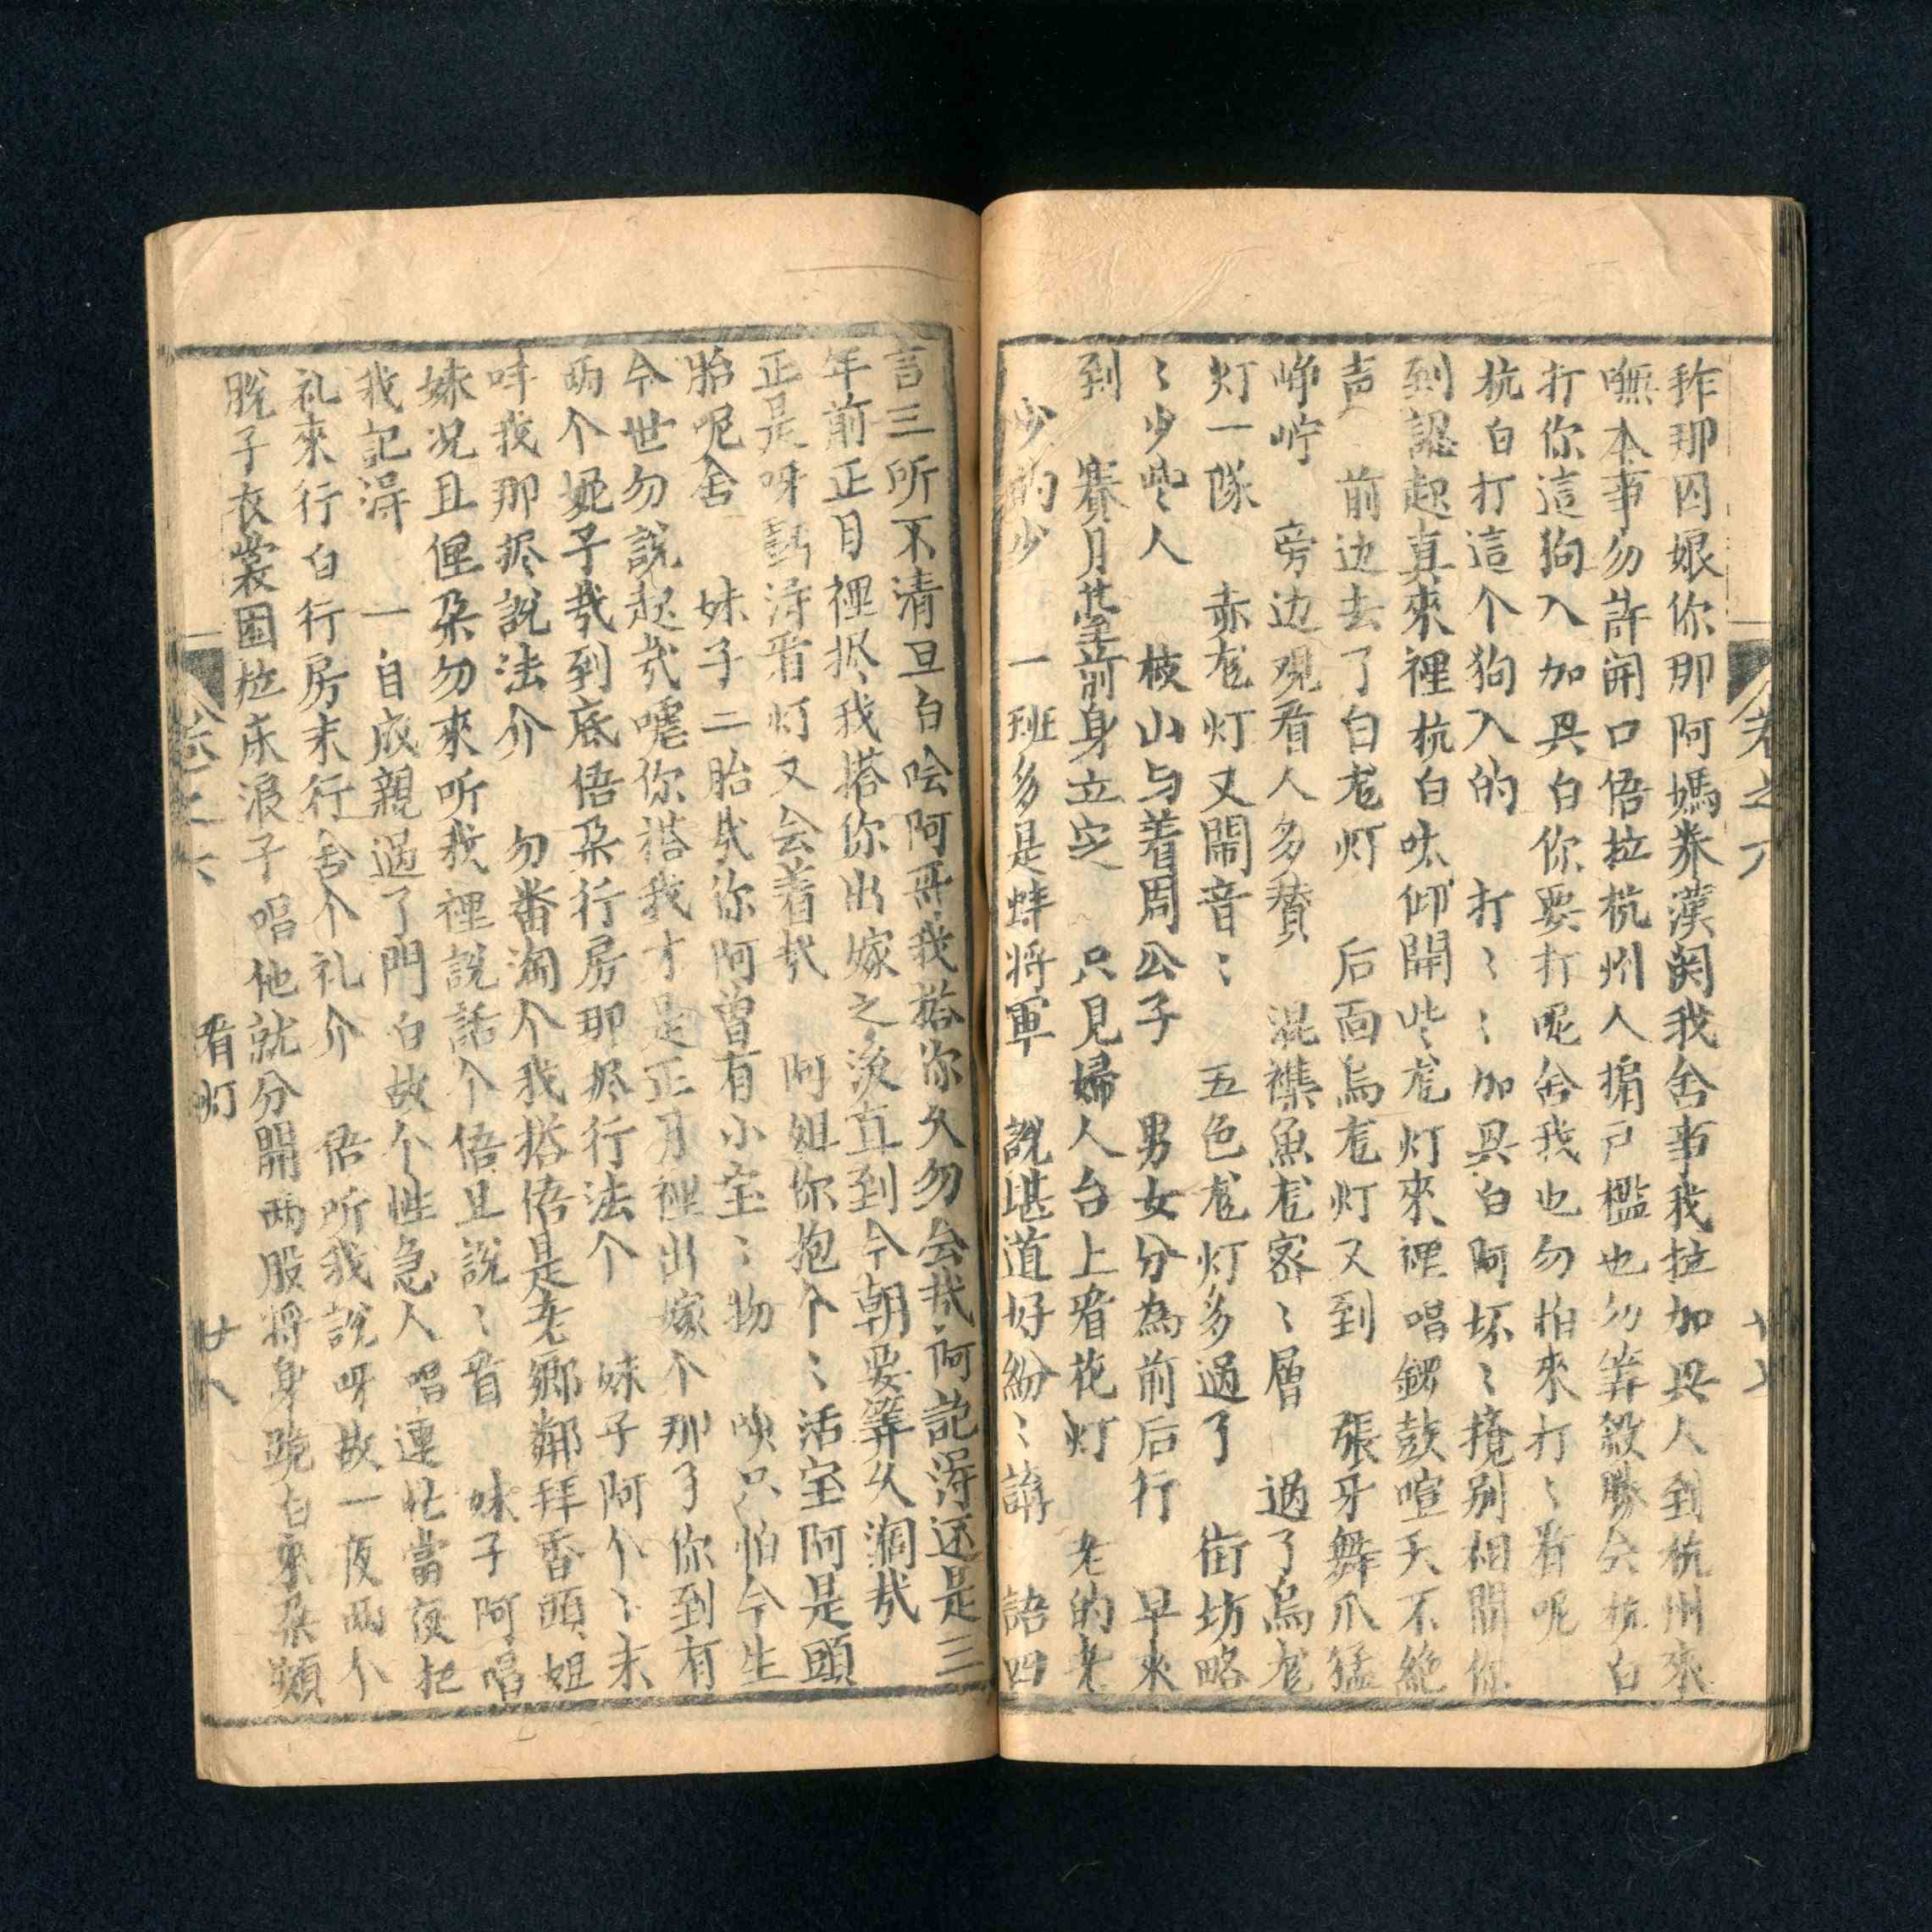 称那囚娘你那阿媽养漢闵我舍事我拉加興人到杭州來
嘸本事勿許開口俉拉杭州人掮户檻也勿筭殺勝会杭白
打你這狗入加興白你要打呢舍我也勿怕來打〻看呢
杭白打這个狗入的 打〻〻加興白阿坏〻撓别相闘你
到認起真來裡杭白呔仰開些尨灯來裡唱鑼鼓喧天不絶
声 前边去了白尨灯 后面烏尨灯又到 張牙舞爪猛
峥岼 旁边观看人多賛 混襍魚尨密〻層 过了烏尨
灯一隊 赤尨灯又鬧音〻 五色尨灯多过了 街坊略
〻少些人 枝山与着周公子 男女分為前后行 早來
到 賽月台前身立定 只見婦人台上看花灯 老的老
少的少 一班多是蚌将軍 説堪道好紛〻講 語四
言三所不清旦白哙阿哥我搭你久勿会哉阿記淂还是三
年前正月裡拯我搭你出嫁之後直到今朝要筭久濶哉
正是呀 淂看灯又会着哉 阿姐你抱个〻活宝阿是頭
胎呢舍 妹子二胎哉你阿曾有小宝〻物 唉只怕今生
今世勿說起哉嚧你搭我才是正月裡出嫁个那了你到有
两个娓子哉到底俉朶行房那拯行法个 妹子阿个〻末
呌我那拯說法介 勿畨淘个我搭俉是老鄉鄰拜香頭姐
妹况且俚朶勿來听我裡說話个俉且說〻看 妹子阿唱
我記淂 一自成親過了門白故个性急人唱連忙當夜把
礼來行白行房末行舍个礼介 俉听我說呀故一夜两个
脫子衣裳囥拉床浪子唱他就分開两股将身跪白來朶顛
卷之六
看灯
廿八